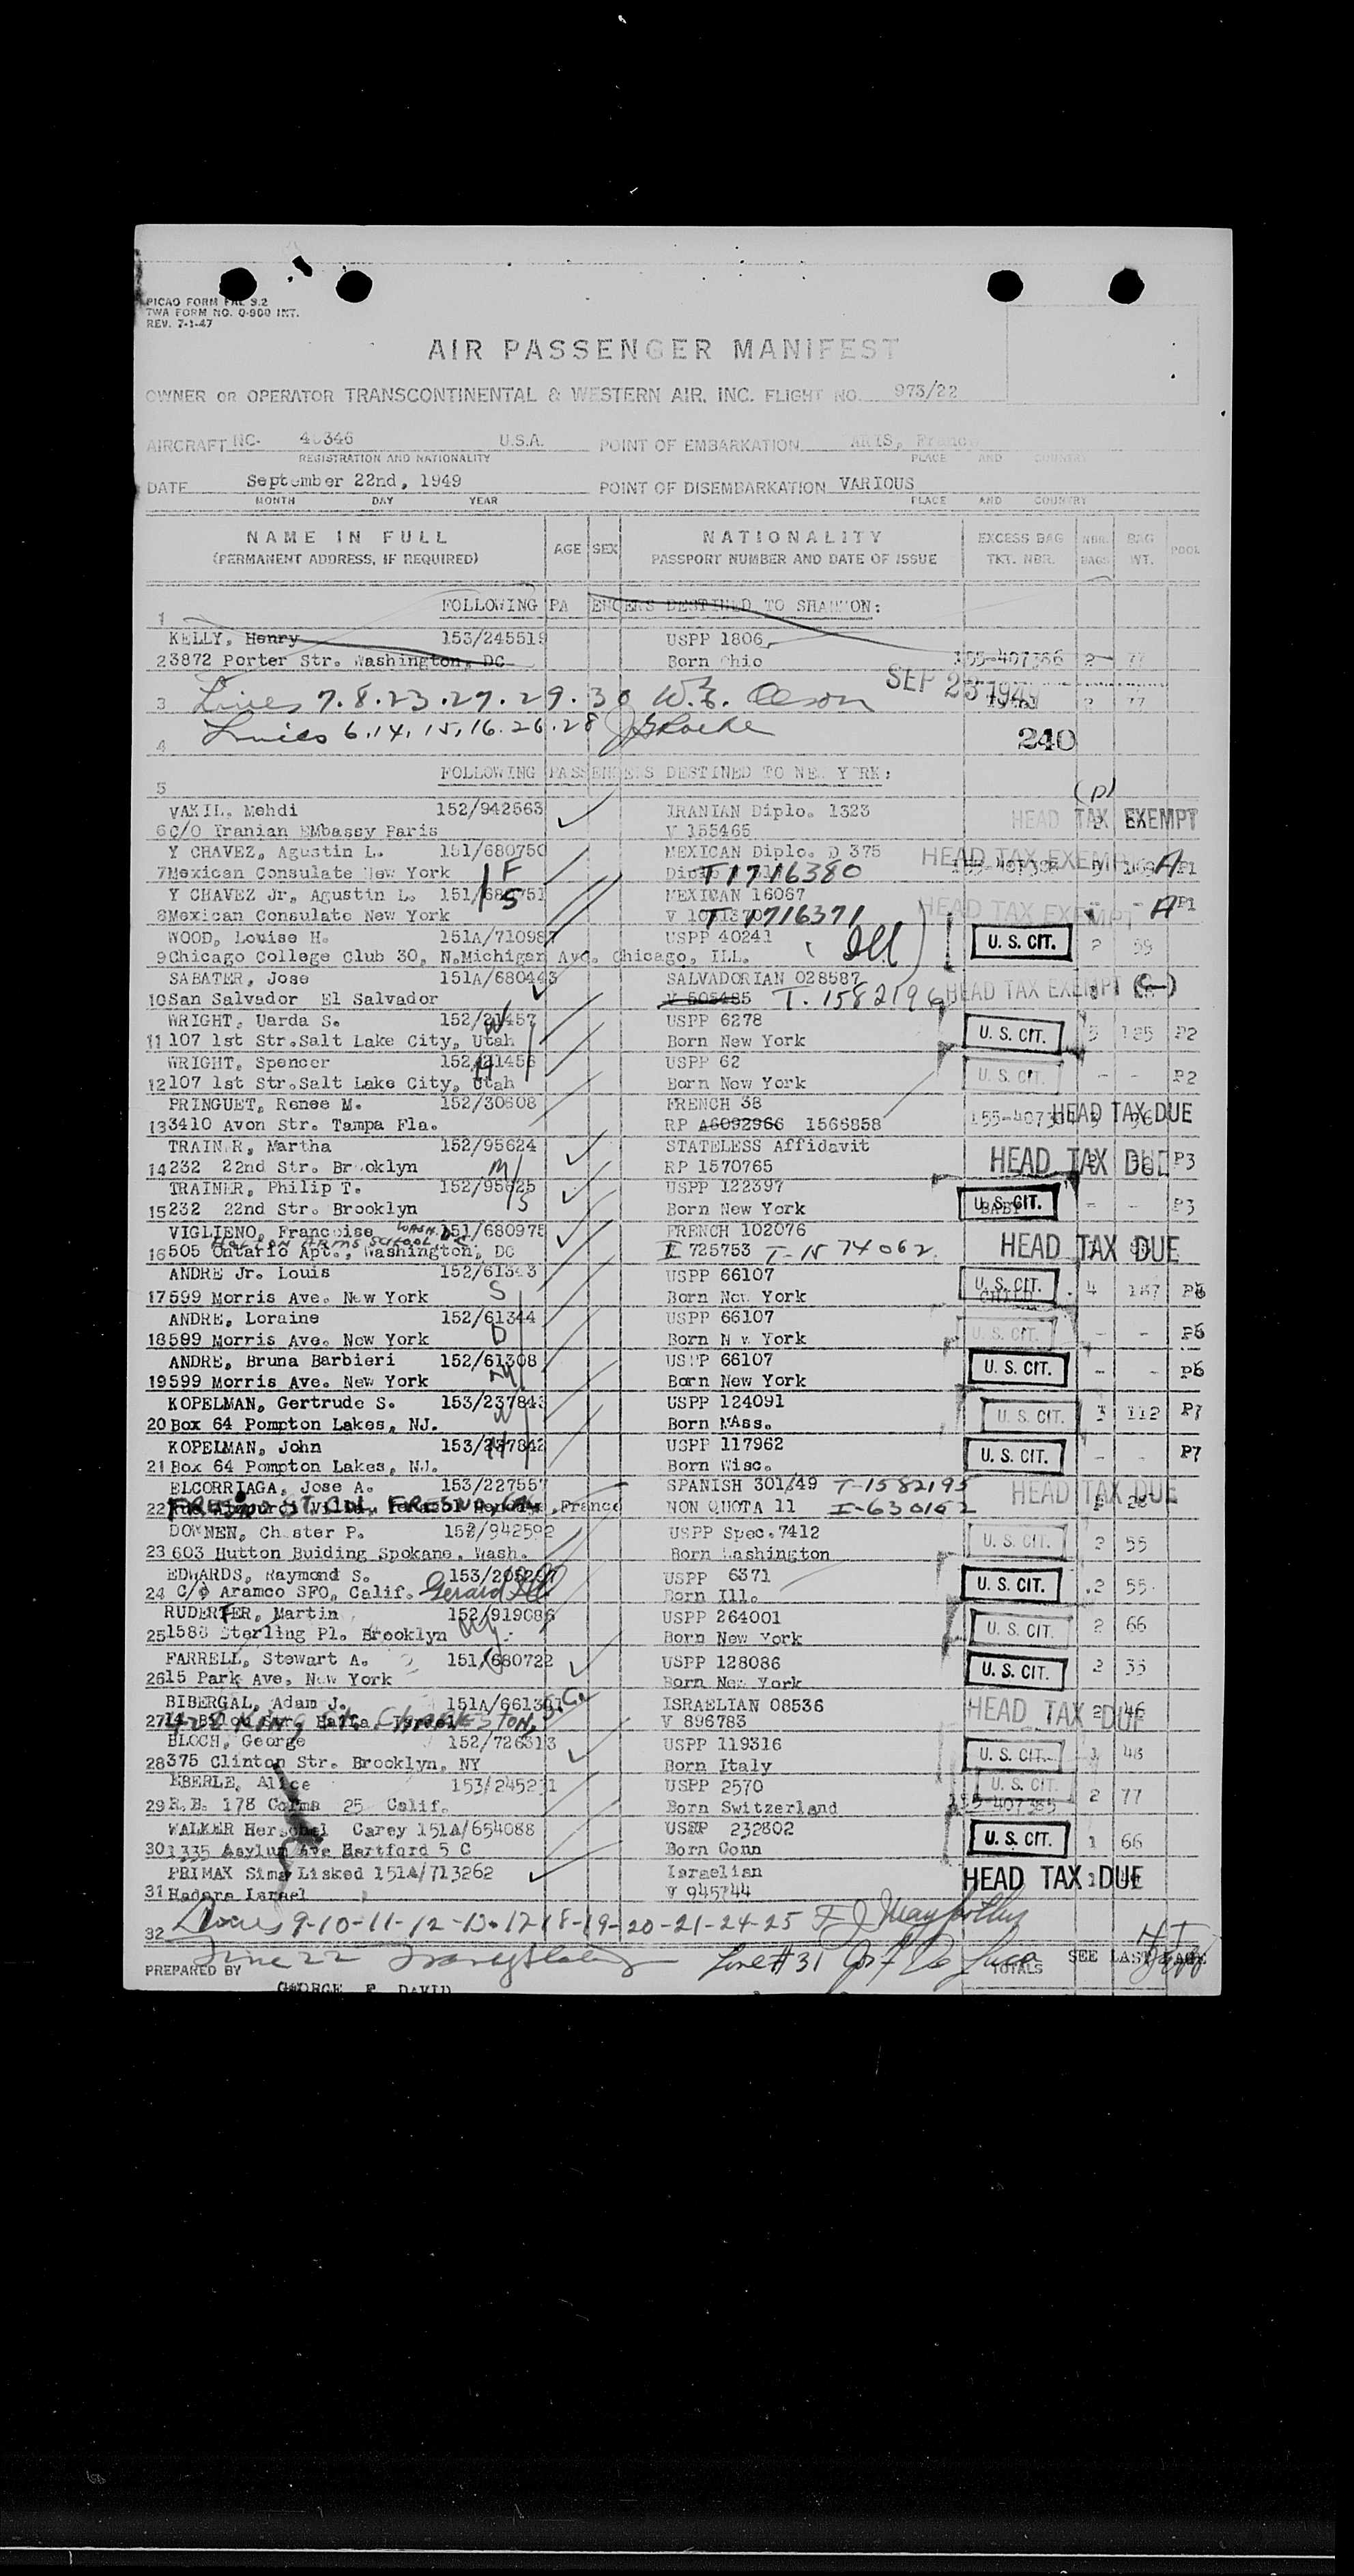 PICAO FORM FAL 9.2
TWA FORM NO. O-900 INT.
REV. 7-1-47
AIR PASSENGER MANIFEST
OWNER OR OPERATOR TRANSCONTINENTAL & WESTERN AIR, INC. FLIGHT NO. 973/22
AIRCRAFT NC- 40346 U.S.A. POINT OF EMBARKATION ARIS, France
REGISTRATION AND NATIONALITY PLACE AND COUNTRY
DATE September 22nd, 1949 POINT OF DISEMBARKATION VARIOUS
MONTH DAY YEAR PLACE AND COUNTRY
NAME IN FULL AGE SEX NATIONALITY EXCESS BAG NBR. BAG POOL
(PERMANENT ADDRESS, IF REQUIRED) PASSPORT NUMBER AND DATE OF ISSUE TKT. NBR. BAGS WT.
1 FOLLOWING PA ENGERS DESTINED TO SHANNON:
KELLY, Henry 153/245519 USPP 1806
2 3872 Porter Str. Washington, DC Born Ohio 155-407386 2 77
SEP 23 1949
3 Lines 7.8.23.27.29.30 W.E. Olson 2 77
4 Lines 6.14.15.16.26.28 240
5 FOLLOWING PASSENGERS DESTINED TO NE. Y RK:
(D)
VAKIL, Mehdi 152/942563 IRANIAN Diplo. 1323 HEAD TAX EXEMPT
6 C/O Iranian EMbassy Paris V 155465
Y CHAVEZ, Agustin L. 151/680750 MEXICAN Diplo. D 375 HEAD TAX EXEMPT
7 Mexican Consulate New York F T1716380 A P1
Y CHAVEZ Jr, Agustin L. 151/680751 MEXICAN 16067 HEAD TAX EXEMPT
8 Mexican Consulate New York S T 1716371 A P1
WOOD, Louise H. 151A/710987 USPP 40241 U. S. CIT. 2 59
9 Chicago College Club 30, N.Michigan Ave. Chicago, ILL. Ill
SABATER, Jose 151A/680443 SALVADORIAN 028587 HEAD TAX EXEMPT
10 San Salvador El Salvador V 506485 T. 1582196
WRIGHT, Uarda S. 152/21457 USPP 6278 U. S. CIT.
11 107 1st Str.Salt Lake City, Utah W Born New York 5 185 P2
WRIGHT, Spencer 152/21456 USPP 62 U. S. CIT.
12 107 1st Str.Salt Lake City, Utah H Born New York - - P2
PRINGUET, Renee M. 152/30608 FRENCH 38 HEAD TAX DUE
13 3410 Avon Str. Tampa Fla. RP A6092966 1566858
TRAINER, Martha 152/95624 STATELESS Affidavit HEAD TAX DUE
14 232 22nd Str. Br oklyn M RP 1570765 P3
TRAINER, Philip T. 152/95625 USPP 122397 U. S. CIT. BABY
15 232 22nd Str. Brooklyn S Born New York - - P3
VIGLIENO, Francoise 151/680975 FRENCH 102076 HEAD TAX DUE
16 505 Ontario Apt., Washington, DC I 725753 T-1574062
ANDRE Jr. Louis 152/61343 USPP 66107 U. S. CIT. 4 187 P6
17 599 Morris Ave. New York S Born New York
ANDRE, Loraine 152/61344 USPP 66107 U. S. CIT.
18 599 Morris Ave. New York D Born N w York - - P6
ANDRE, Bruna Barbieri 152/61308 USPP 66107 U. S. CIT.
19 599 Morris Ave. New York M Born New York - - P6
KOPELMAN, Gertrude S. 153/237843 USPP 124091 U. S. CIT. 3 112 P7
20 Box 64 Pompton Lakes, NJ. W Born MAss.
KOPELMAN, John 153/237842 USPP 117962 U. S. CIT. - - P7
21 Box 64 Pompton Lakes, NJ. H Born Wisc.
ELCORRIAGA, Jose A. 153/227557 SPANISH 301/49 T-1582195 HEAD TAX DUE
22 France NON QUOTA 11 I-630162
DOWNEN, Chester P. 152/942592 USPP Spec.7412 U. S. CIT. 2 55
23 603 Hutton Buiding Spokane, Wash. Born Washington
EDWARDS, Raymond S. 153/205297 USPP 6371 U. S. CIT. 2 55
24 C/o Aramco SFO, Calif. Gerard Ill Born Ill.
RUDERFER, Martin 152/919086 USPP 264001 U. S. CIT. 2 66
25 1588 Sterling Pl. Brooklyn NY Born New York
FARRELL, Stewart A. 151/680722 USPP 128086 U. S. CIT. 2 35
26 15 Park Ave, New York Born New York
BIBERGAL, Adam J. 151A/661361 ISRAELIAN 08536 HEAD TAX DUE 2 46
27 Haifa, Israel KING ST. CHARLESTON, S.C. V 896783
BLOCH, George 152/726313 USPP 119316 U. S. CIT. 1 48
28 375 Clinton Str. Brooklyn, NY Born Italy
EBERLE, Alice 153/245231 USPP 2570 U. S. CIT. 2 77
29 R.E. 178 Corma 25 Calif. Born Switzerland 155-407385
WALKER Herschel Carey 151A/654088 USPP 232802 U. S. CIT. 1 66
30 1335 Asylum Ave Hartford 5 C Born Conn
PRIMAX Sima Lisked 151A/713262 Israelian HEAD TAX DUE
31 Hadera Israel V 945744
32 Lines 9-10-11-12-13-17-18-19-20-21-24-25
Line 22 Line #31 Jos F De Luca
PREPARED BY TOTALS SEE LAST PAGE
GEORGE F DAVID